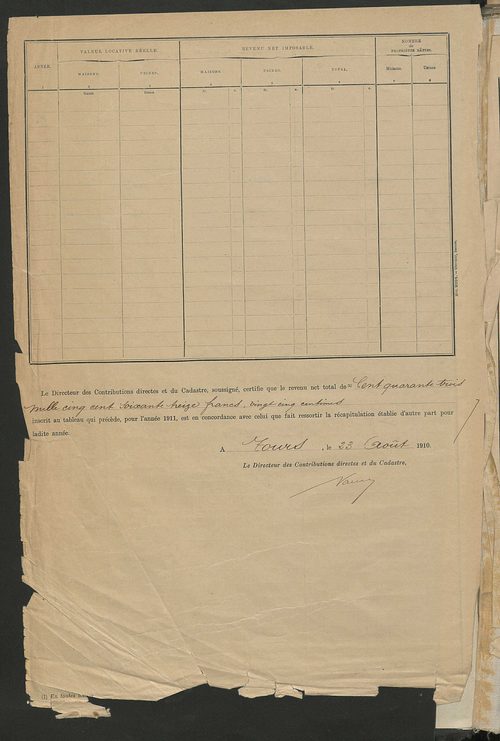 ANNÉE.
VALEUR LOCATIVE RÉELLE.
REVENU NET IMPOSABLE.
NOMBRE
de
PROPRIÉTÉS BÂTIES.
MAISONS.
USINES.
MAISONS.
USINES.
TOTAL.
Maisons.
Usines.
1
2
3
4
5
6
7
8
francs
francs
fr. c.
fr. c.
fr. c.
Le Directeur des Contributions directes et du Cadastre, soussigné, certifie que le revenu net total de (1) Cent quarante trois
mille cinq cent soixante seize francs, vingt cinq centimes
inscrit au tableau qui précède, pour l'année 1911, est en concordance avec celui que fait ressortir la récapitulation établie d'autre part pour
ladite année.
A Tours, le 23 Août 1910.
Le Directeur des Contributions directes et du Cadastre,
(1) En toutes